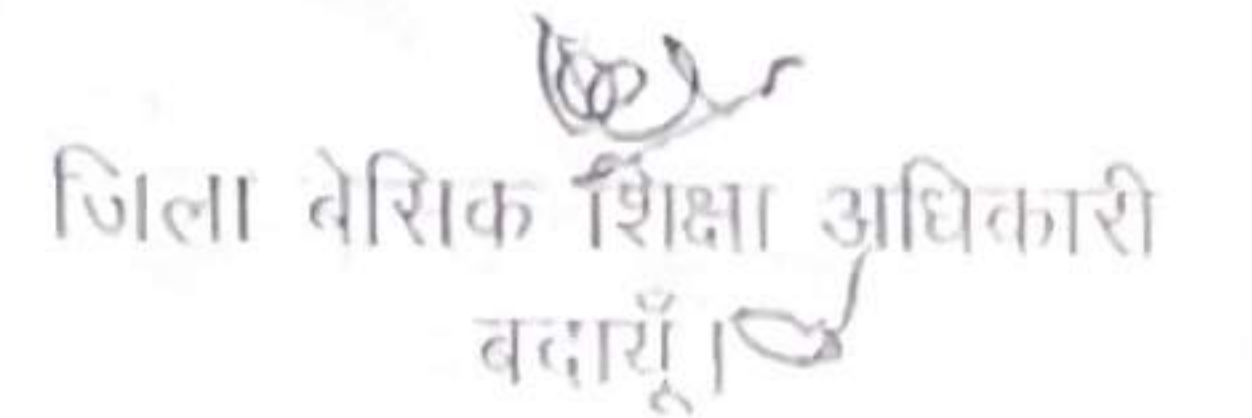 जिला बेसिक शिक्षा अधिकारी
बदायूँ।